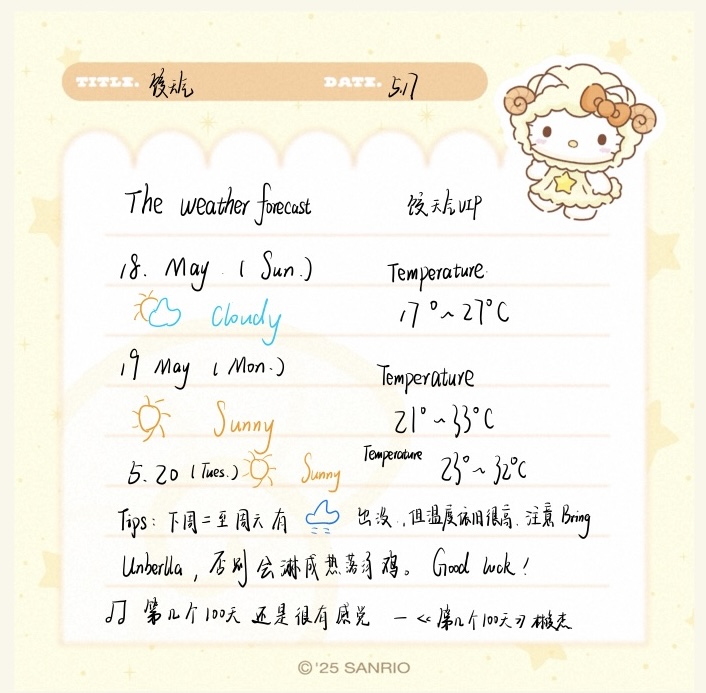 TITLE. 饺天气 DATE. 5.17
The weather forecast 饺天气VIP
18. May ( Sun. )
Temperature.
Cloudy 17°~27°C
19 May ( Mon. )
Temperature
Sunny 21°~33°C
5.20 (Tues.) Sunny Temperature 23°~32°C
Tips: 下周二至周六有 出没,但温度依旧很高.注意Bring
Unberlla,否则会淋成热落汤鸡。Good luck!
♫ 第几个100天 还是很有感觉 —《第几个100天》林俊杰
©'25 SANRIO